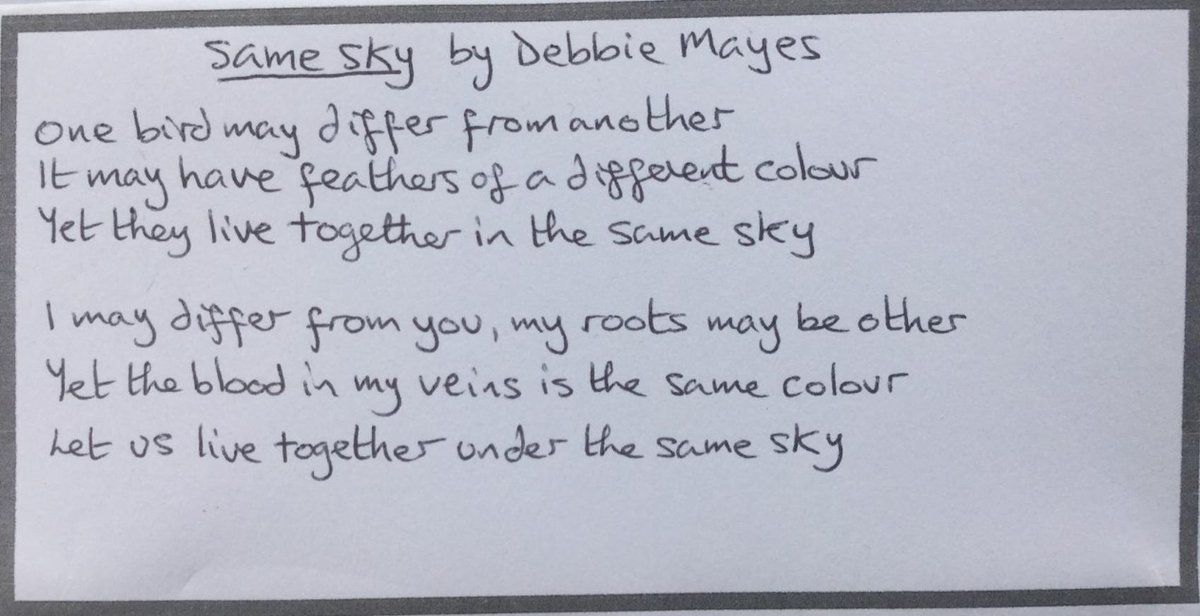 Same Sky by Debbie Mayes
One bird may differ from another
It may have feathers of a different colour
Yet they live together in the same sky
I may differ from you, my roots may be other
Yet the blood in my veins is the same colour
Let us live together under the same sky